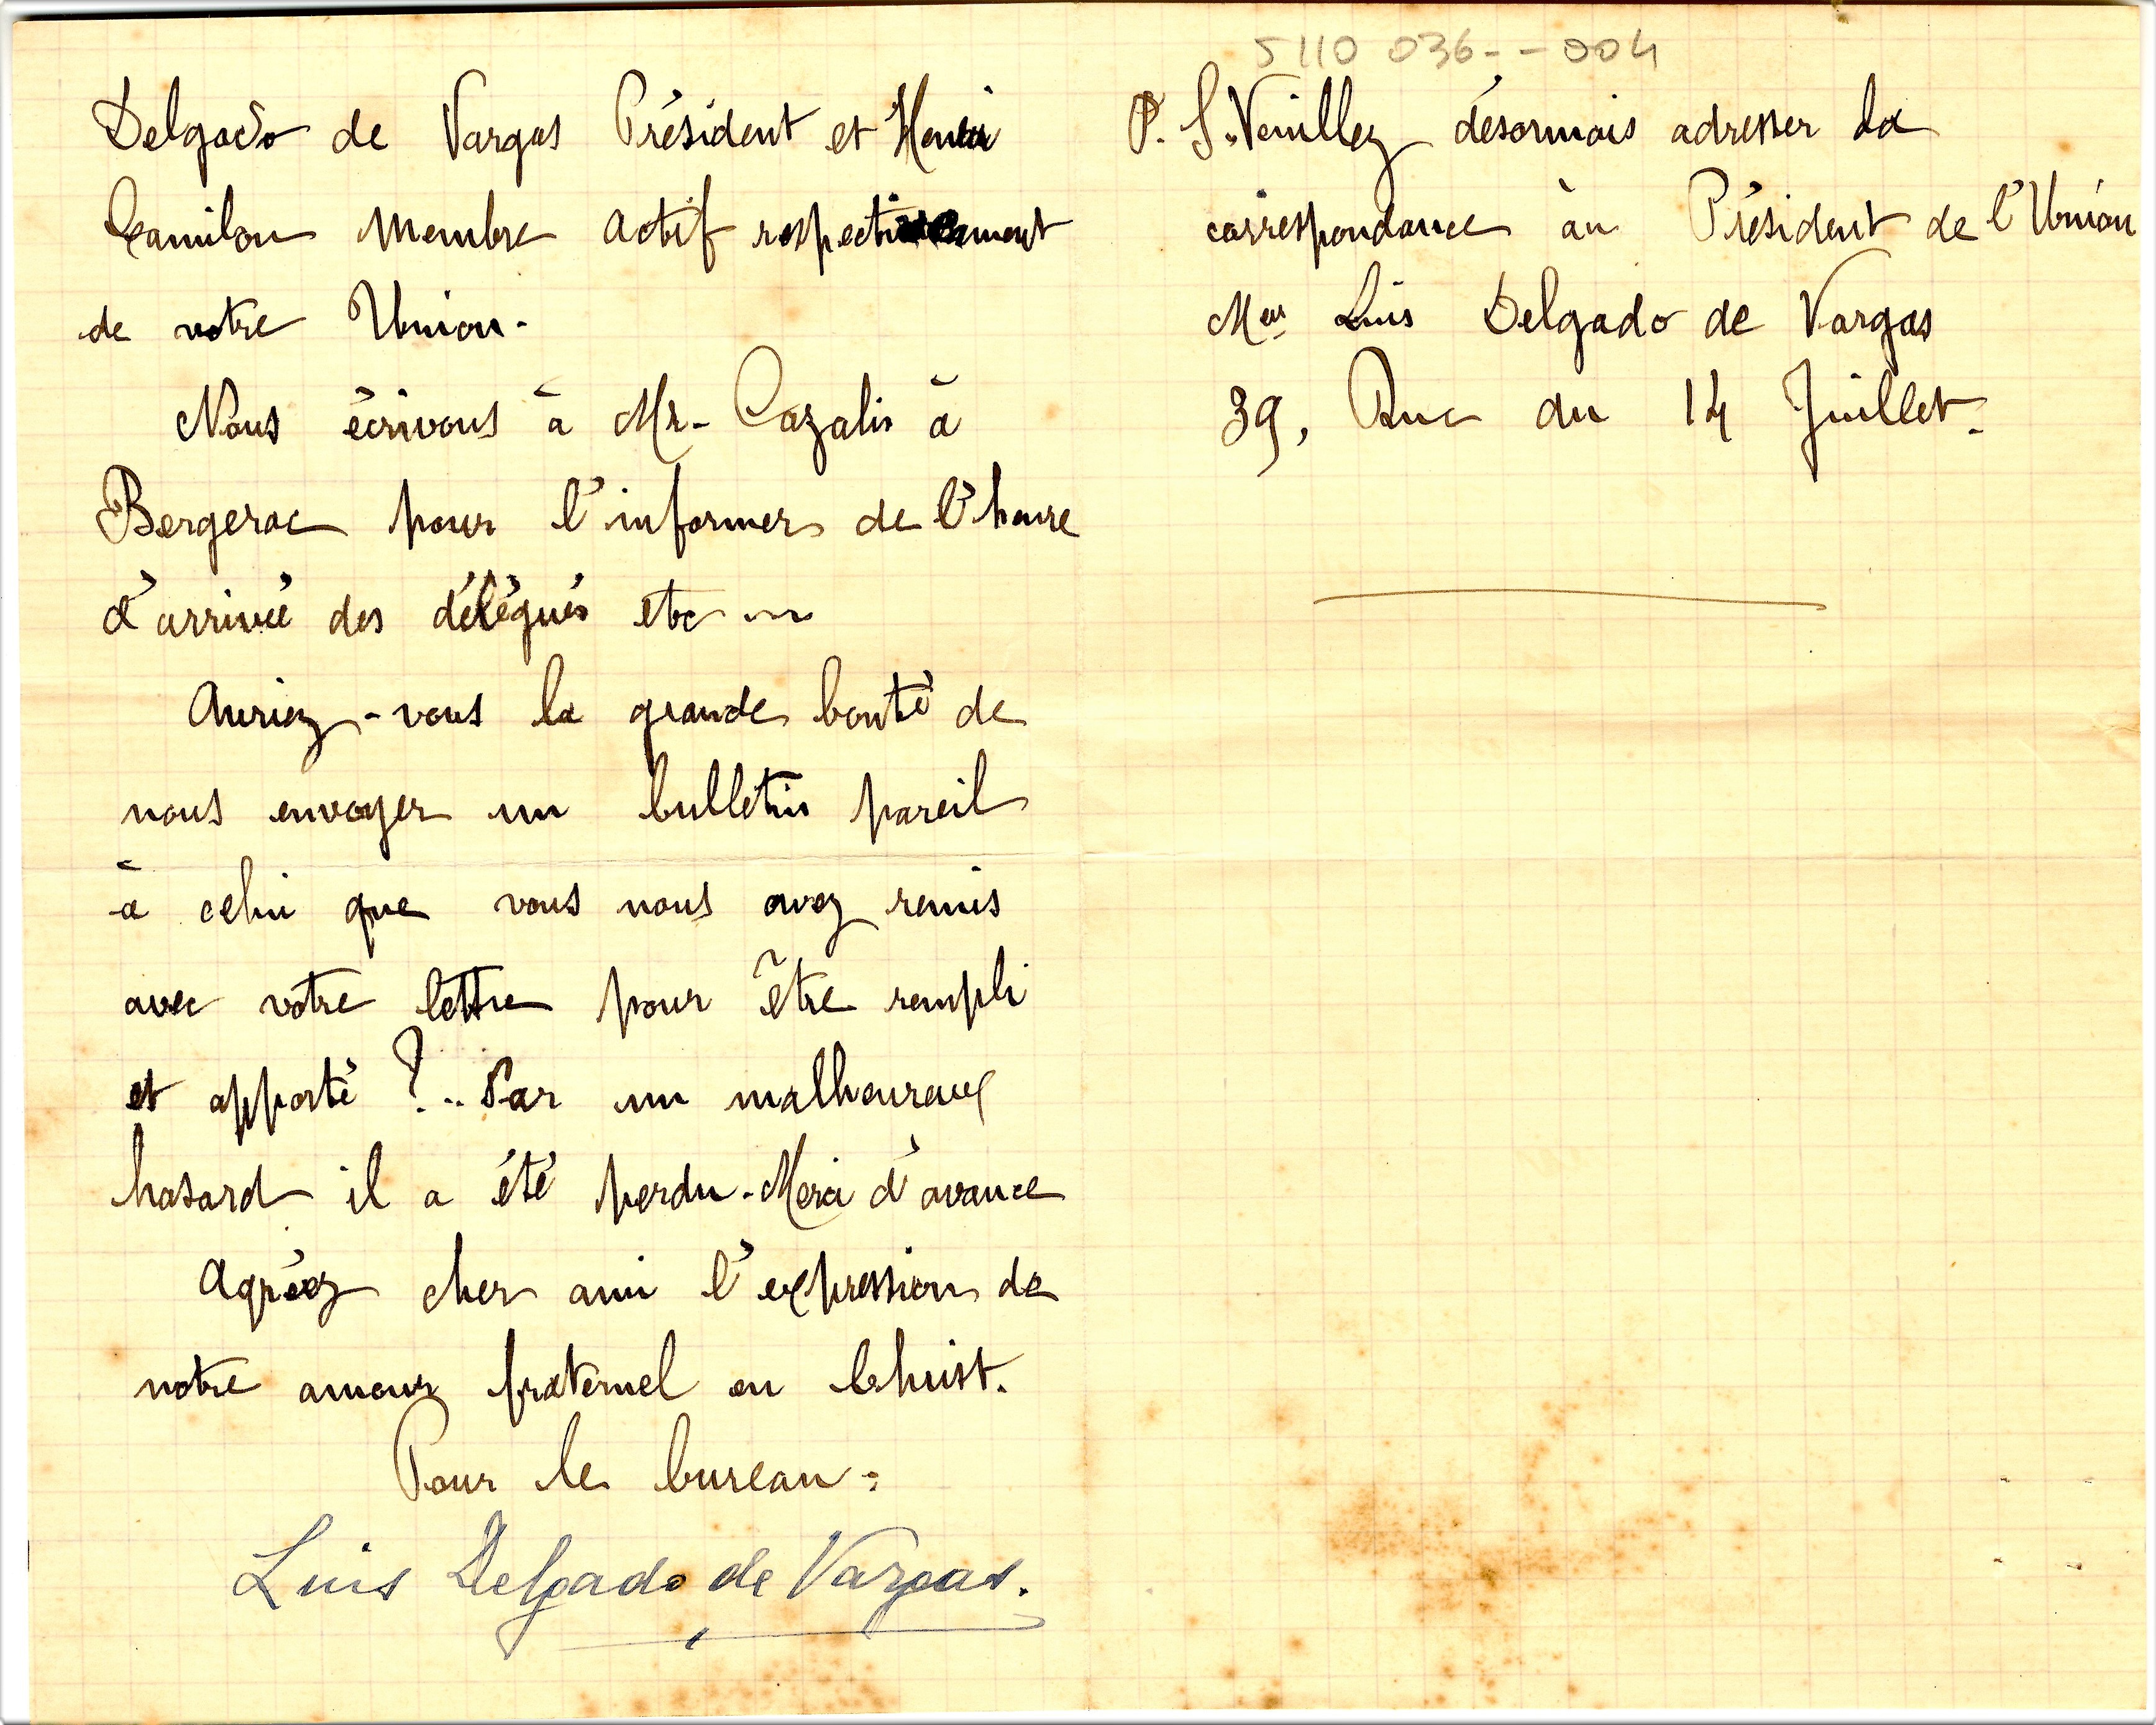 Delgado de Vargas Président et Henri
Camilon membre actif respectivement
de notre Union.
Nous écrivons à Mr. Cazalis à
Bergerac pour l'informer de l'heure
d'arrivée des délégués etc...
Auriez-vous la grande bonté de
nous envoyer un bulletin pareil
à celui que vous nous avez remis
avec votre lettre pour être rempli
et apporté ?.. Par un malheureux
hasard il a été perdu. Merci d'avance
Agréez cher ami l'expression de
notre amour fraternel en Christ.
Pour le bureau:
Luis Delgado de Vargas.
5110 036--004
P. S. Veuillez désormais adresser la
correspondance au Président de l'Union
Mr Luis Delgado de Vargas
39, Rue du 14 Juillet.